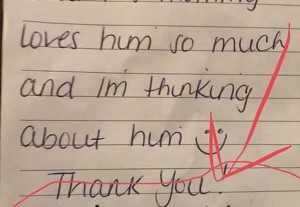 loves him so much
and Im thinking
about him
Thank You.